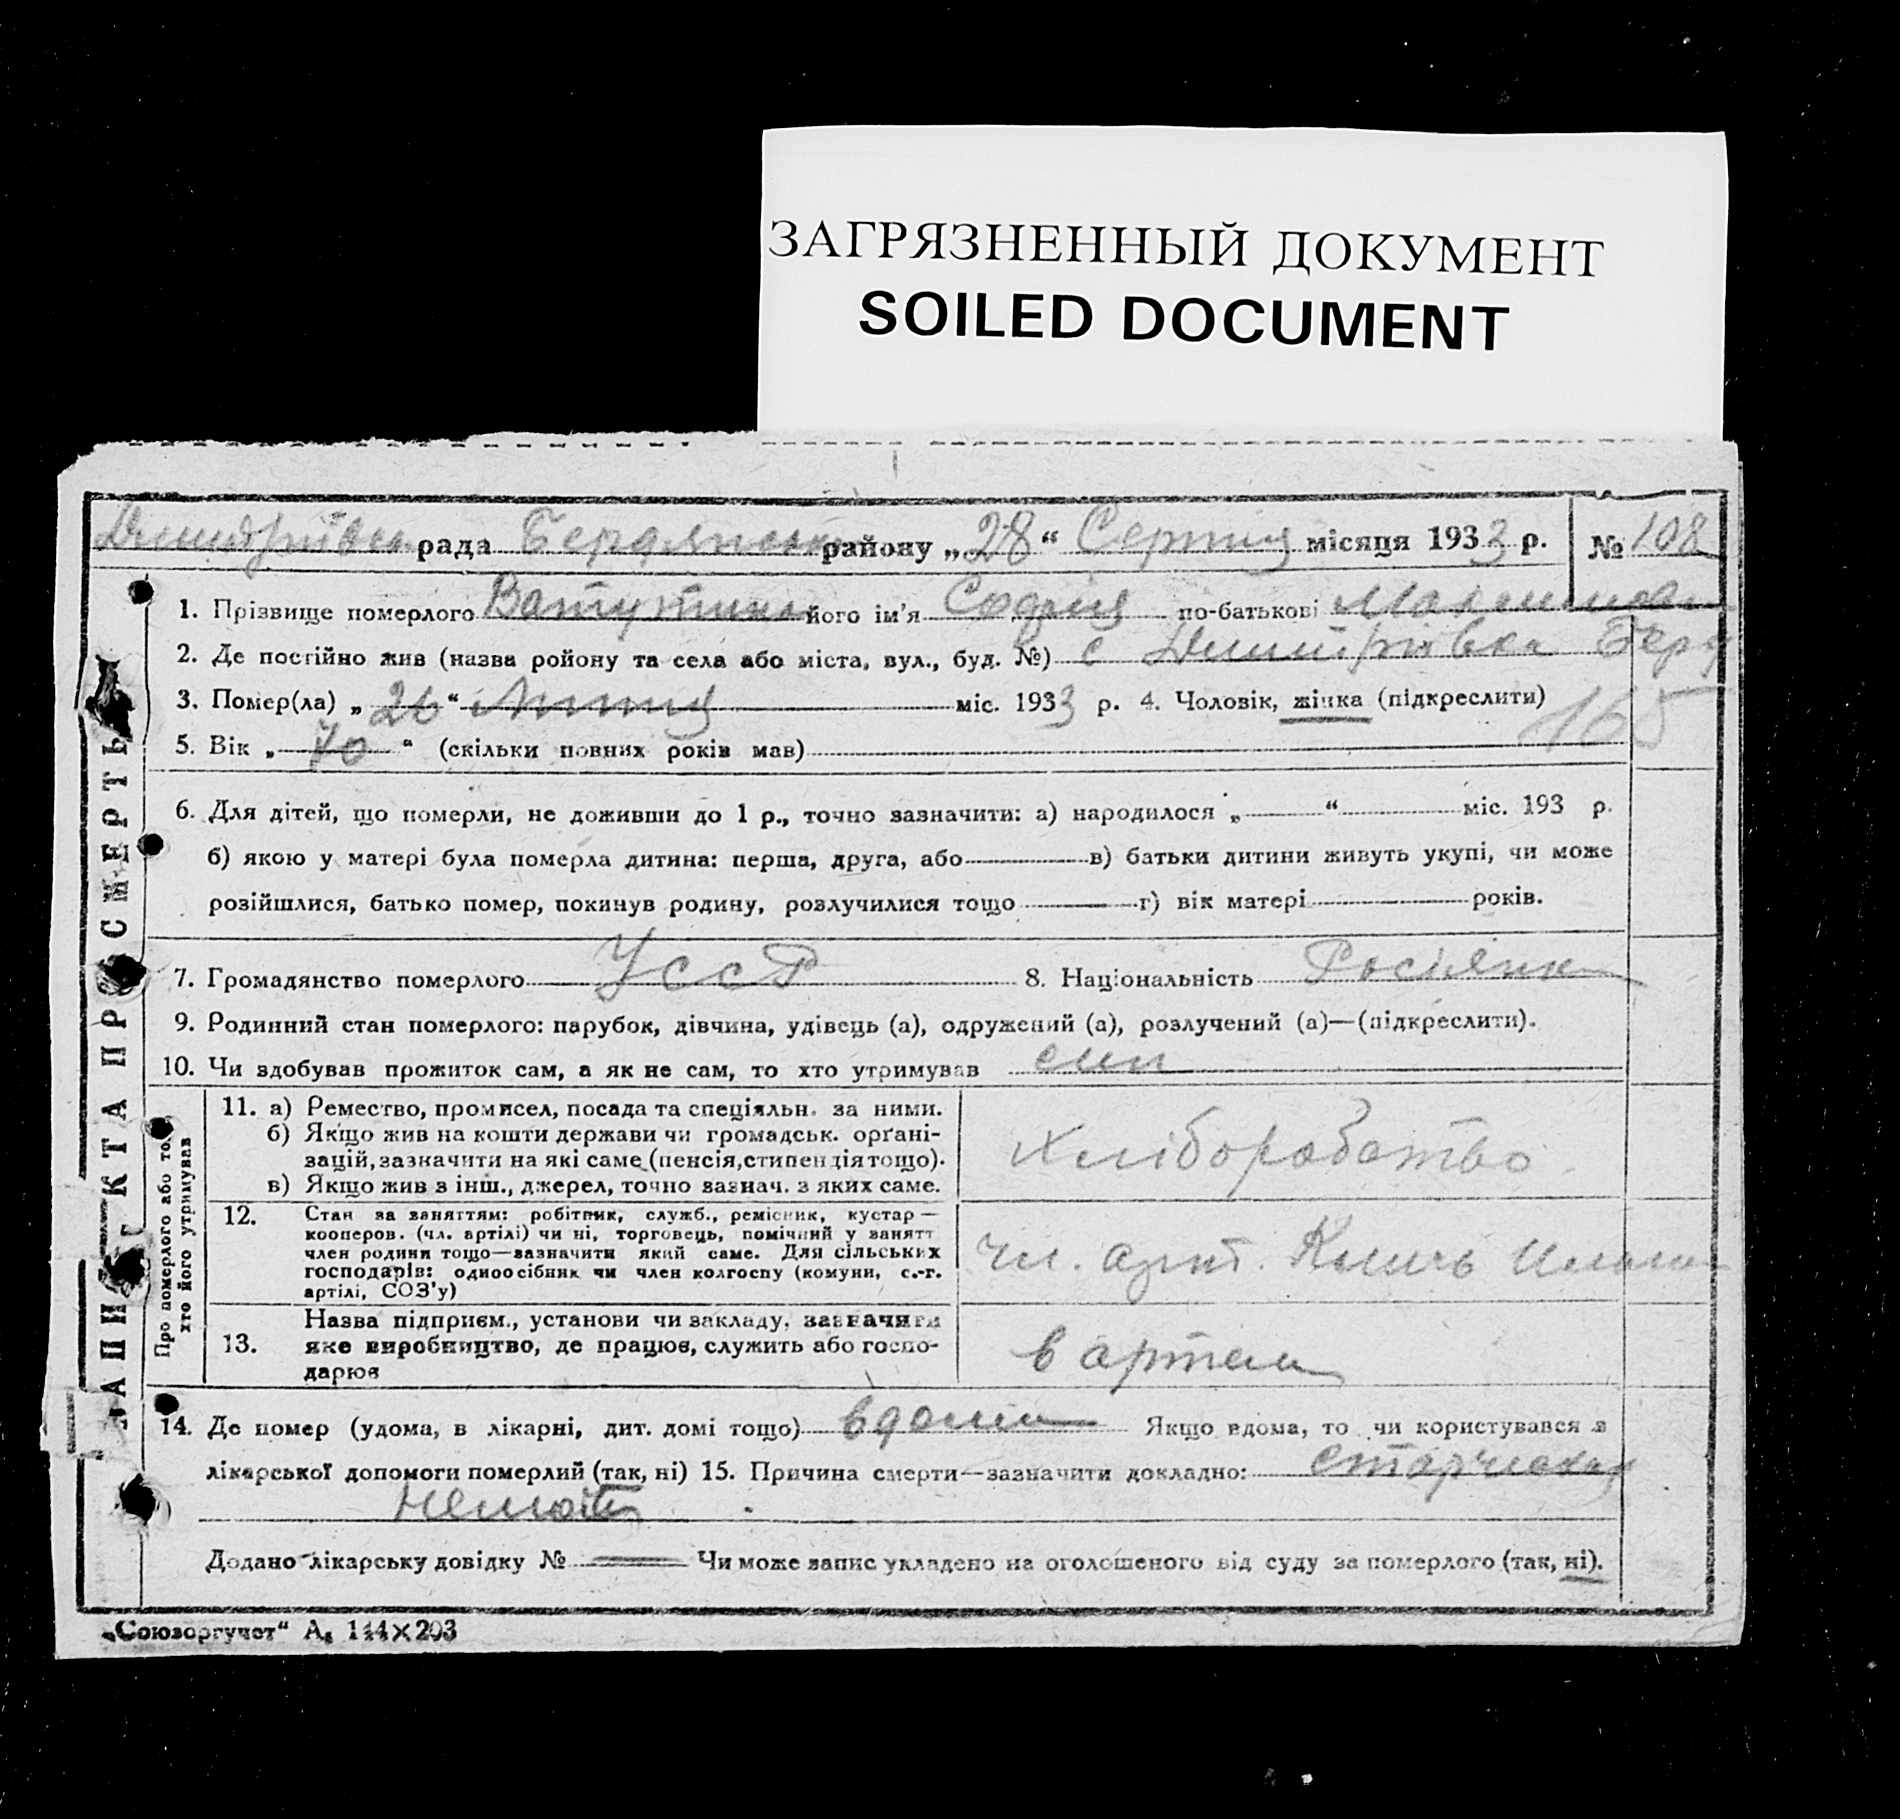 ЗАГРЯЗНЕННЫЙ ДОКУМЕНТ
SOILED DOCUMENT
Дмитрівка рада Бердянське району „28“ Серпня місяця 1933 р. № 108
1. Прізвище померлого Ватутина його ім'я Софія по-батькові
2. Де постійно жив (назва ройону та села або міста, вул., буд. №) с Дмитрівка Берд
3. Помер(ла) „26“ Липня міс. 1933 р. 4. Чоловік, жінка (підкреслити)
165
5. Вік „70“ (скільки повних років мав)
6. Для дітей, що померли, не доживши до 1 р., точно зазначити: а) народилося „ “ міс. 193 р.
б) якою у матері була померла дитина: перша, друга, або в) батьки дитини живуть укупі, чи може
розійшлися, батько помер, покинув родину, розлучилися тощо г) вік матері років.
7. Громадянство померлого УССР 8. Національність Росіянка
9. Родинний стан померлого: парубок, дівчина, удівець (а), одружений (а), розлучений (а)—(підкреслити).
10. Чи здобував прожиток сам, а як не сам, то хто утримував син
ЗАПИС АКТА ПРО СМЕРТЬ
Про померлого або то,
хто його утримував
11. а) Ремество, промисел, посада та спеціяльн. за ними.
б) Якщо жив на кошти держави чи громадськ. орґані-
зацій, зазначити на які саме (пенсія, стипендія тощо).
в) Якщо жив з інш., джерел, точно зазнач. з яких саме.
хліборобство
12. Стан за заняттям: робітник, служб., ремісник, кустар—
кооперов. (чл. артілі) чи ні, торговець, помічний у занятт
член родини тощо—зазначити який саме. Для сільських
господарів: одноосібник чи член колгоспу (комуни, с.-г.
артілі, СОЗ'у)
чл. арт.
13. Назва підприєм., установи чи закладу, зазначити
яке виробництво, де працює, служить або госпо-
дарює
в артели
14. Де помер (удома, в лікарні, дит. домі тощо) вдома Якщо вдома, то чи користувався з
лікарської допомоги померлий (так, ні) 15. Причина смерти—зазначити докладно:
Додано лікарську довідку № Чи може запис укладено на оголошеного від суду за померлого (так, ні).
„Союзоргучет“ А₆ 144×203